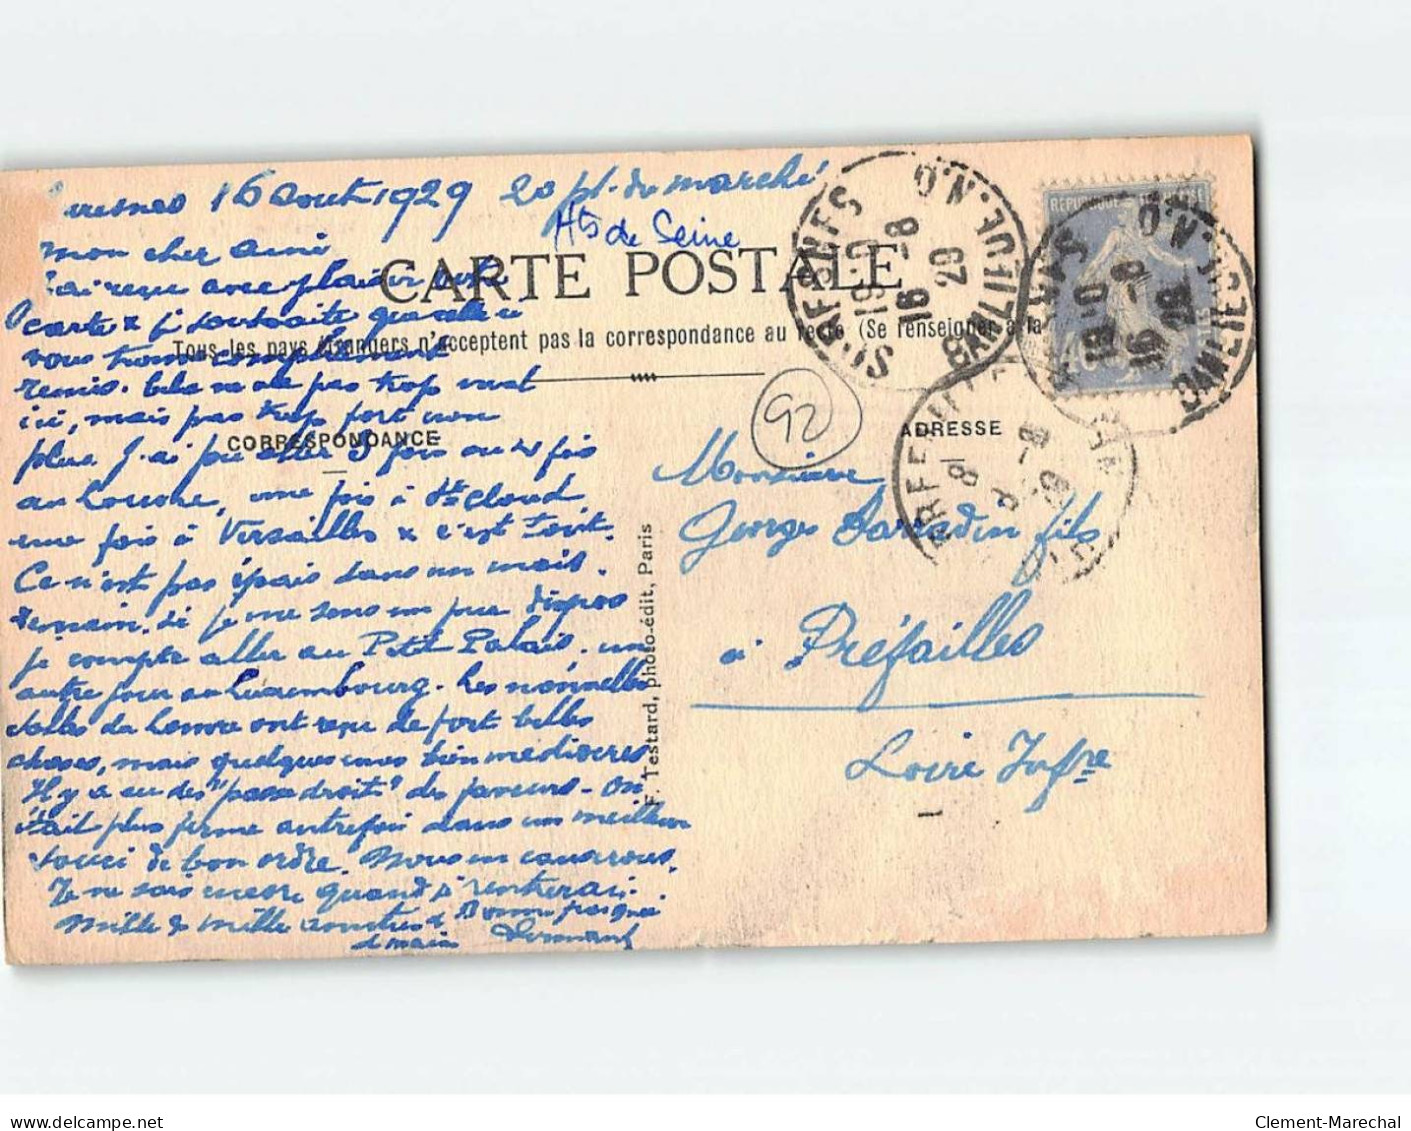 uresnes 16 Aout 1929 20 pl. du marché
Hts de Seine
mon cher ami
CARTE POSTALE
J'ai reçu avec plaisir votre
carte & je souhaite que
Tous les pays étrangers n'acceptent pas la correspondance au recto (Se renseigner à la
vous complètement
remis. Cela ne va pas trop mal
ici, mais pas trop fort non
CORRESPONDANCE
ADRESSE
92
plus. J'ai pu aller 3 fois ou 4 fois
au Louvre, une fois à St Cloud
une fois à Versailles & c'est tout.
Ce n'est pas épais dans un mois.
Demain, si je me sens un peu dispos
je compte aller au Petit Palais. un
autre jour au Luxembourg. Les nouvelles
salles du Louvre ont reçu de fort belles
choses, mais quelques unes bien médiocres
Il y a eu des "passe droit" des faveurs. On
était plus ferme autrefois dans un meilleur
souci de bon ordre. Nous en causerons.
Je ne sais encore quand je rentrerai.
Mille & mille amitiés
Monsieur
Georges fils
à Préfailles
Loire Infre
F. Testard, photo-édit, Paris
SURESNES
19-0
16 -8
29
RÉPUBLIQUE FRANÇAISE
Clement-Marechal